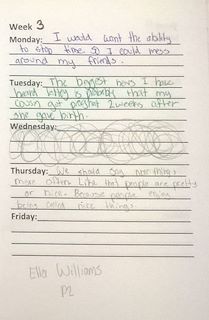 Week 3
Monday: I would want the ability
to stop time so I could mess
around my friends.
Tuesday: The biggest news I have
heard lately is probably that my
cousin got pregnet 2 weeks after
she gave birth.
Wednesday:
Thursday: We should say nice things
more often. Like that people are pretty
or nice. Because people enjoy
being called nice things.
Friday:
Ella Williams
P2